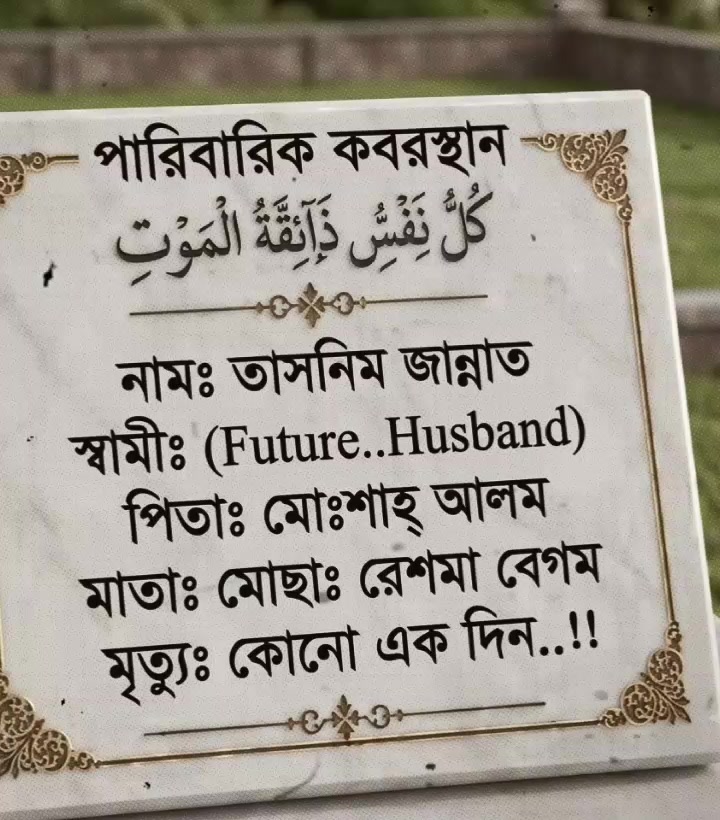 পারিবারিক কবরস্থান
كُلُّ نَفْسٍ ذَآئِقَةُ الْمَوْتِ
নামঃ তাসনিম জান্নাত
স্বামীঃ (Future..Husband)
পিতাঃ মোঃশাহ্ আলম
মাতাঃ মোছাঃ রেশমা বেগম
মৃত্যুঃ কোনো এক দিন..!!